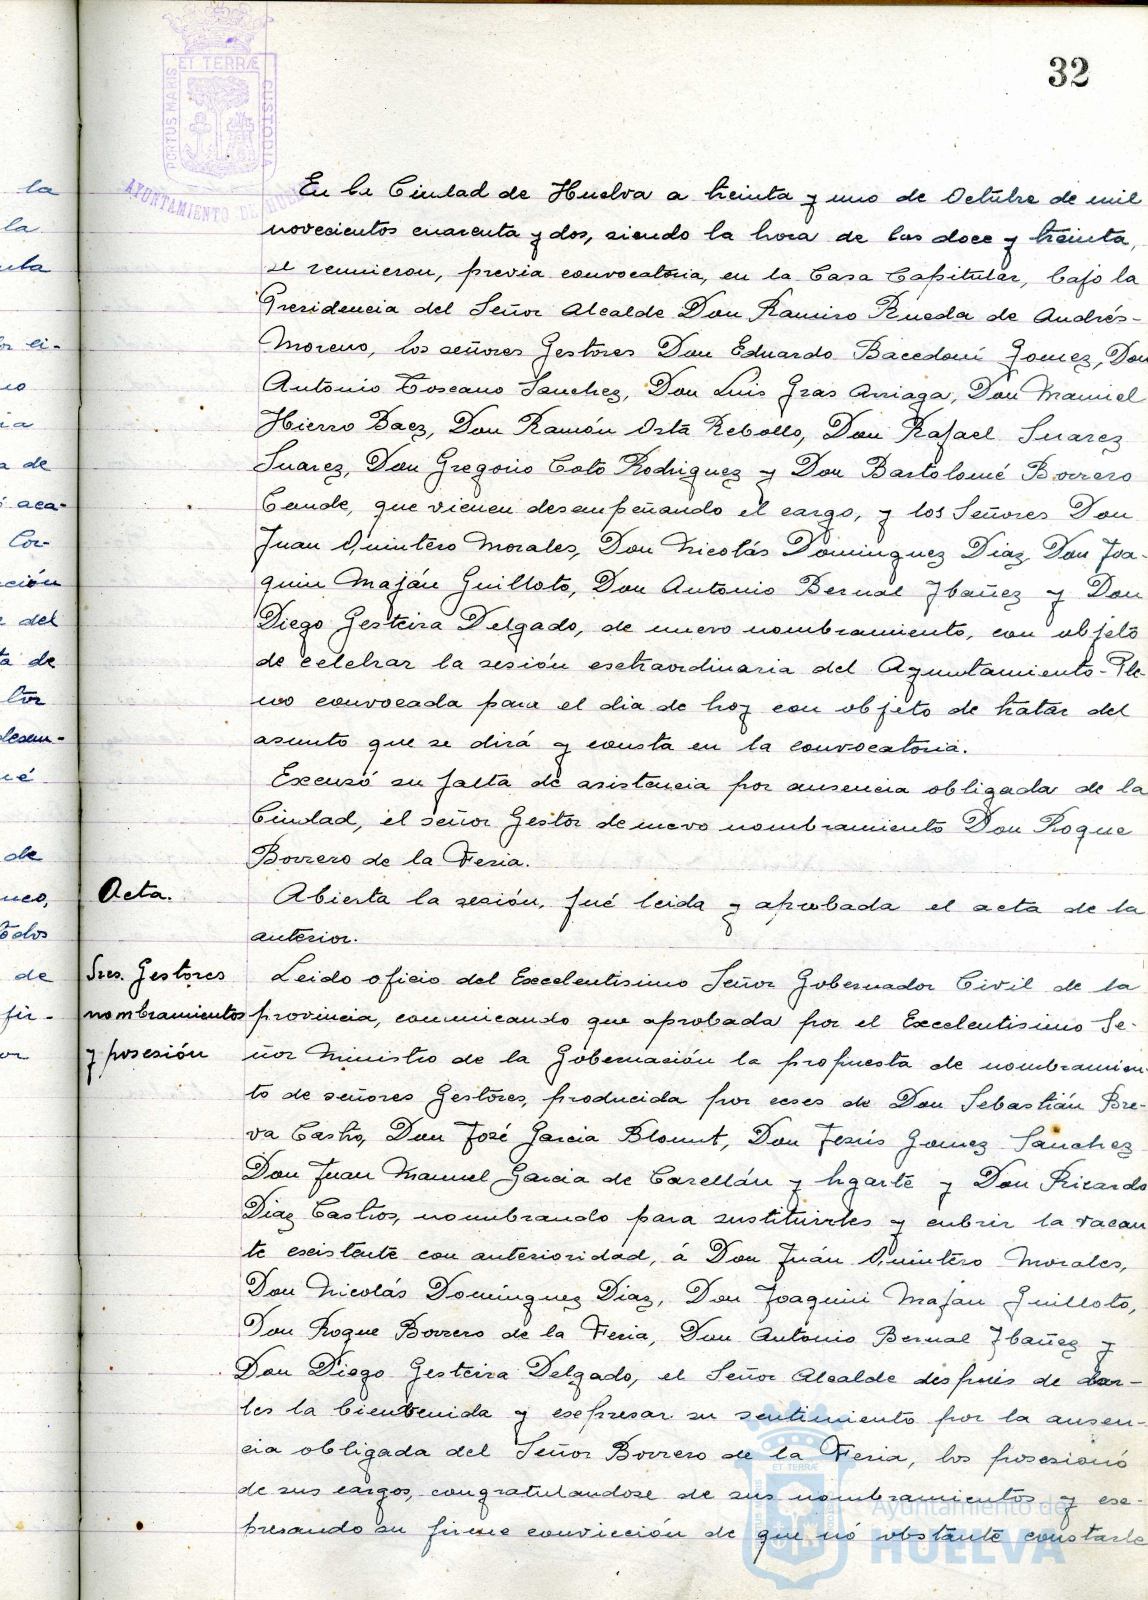 32
ET TERRÆ
PORTUS MARIS
CUSTODIA
AYUNTAMIENTO DE HUELVA
En la Ciudad de Huelva a treinta y uno de Octubre de mil
novecientos cuarenta y dos, siendo la hora de las doce y treinta,
se reunieron, previa convocatoria, en la Casa Capitular, bajo la
Presidencia del Señor Alcalde Don Ramiro Rueda de Andrés-
Moreno, los señores Gestores Don Eduardo Bacedoní Gomez, Don
Antonio Toscano Sanchez, Don Luis Gras Arriaga, Don Manuel
Hierro Baez, Don Ramón Orta Rebollo, Don Rafael Suarez
Suarez, Don Gregorio Coto Rodriguez y Don Bartolomé Borrero
Conde, que vienen desempeñando el cargo, y los Señores Don
Juan Quintero Morales, Don Nicolás Dominguez Diaz, Don Joa-
quin Maján Guilloto, Don Antonio Bernal Ybañez y Don
Diego Gesteira Delgado, de nuevo nombramiento, con objeto
de celebrar la sesión esctraordinaria del Ayuntamiento-Ple-
no convocada para el dia de hoy con objeto de tratar del
asunto que se dirá y consta en la convocatoria.
Excusó su falta de asistencia por ausencia obligada de la
Ciudad, el señor Gestor de nuevo nombramiento Don Roque
Borrero de la Feria.
Acta.
Abierta la sesión, fué leida y aprobada el acta de la
anterior.
Sres. Gestores
nombramientos
y posesión
Leido oficio del Excelentisimo Señor Gobernador Civil de la
provincia, comunicando que aprobada por el Excelentisimo Se-
ñor Ministro de la Gobernación la propuesta de nombramien-
to de señores Gestores, producida por ceses de Don Sebastián Bre-
va Castro, Don José Garcia Blount, Don Jesús Gomez Sanchez
Don Juan Manuel Garcia de Carellán y Ugarte y Don Ricardo
Diaz Castros, nombrando para sustituirles y cubrir la vacan
te escistente con anterioridad, á Don Juán Quintero Morales,
Don Nicolás Domínguez Diaz, Don Joaquin Maján Guilloto,
Don Roque Borrero de la Feria, Don Antonio Bernal Ybañez y
Don Diego Gesteira Delgado, el Señor Alcalde después de dar-
les la bienvenida y escpresar su sentimiento por la ausen-
cia obligada del Señor Borrero de la Feria, los posesionó
de sus cargos, congratulandose de sus nombramientos y esc-
presando su firme convicción de que nó obstante constarle
Ayuntamiento de
HUELVA
la
la
or ci-
de
aca-
Cor-
ción
del
de
desem-
de
neo,
todos
de
fir-
or